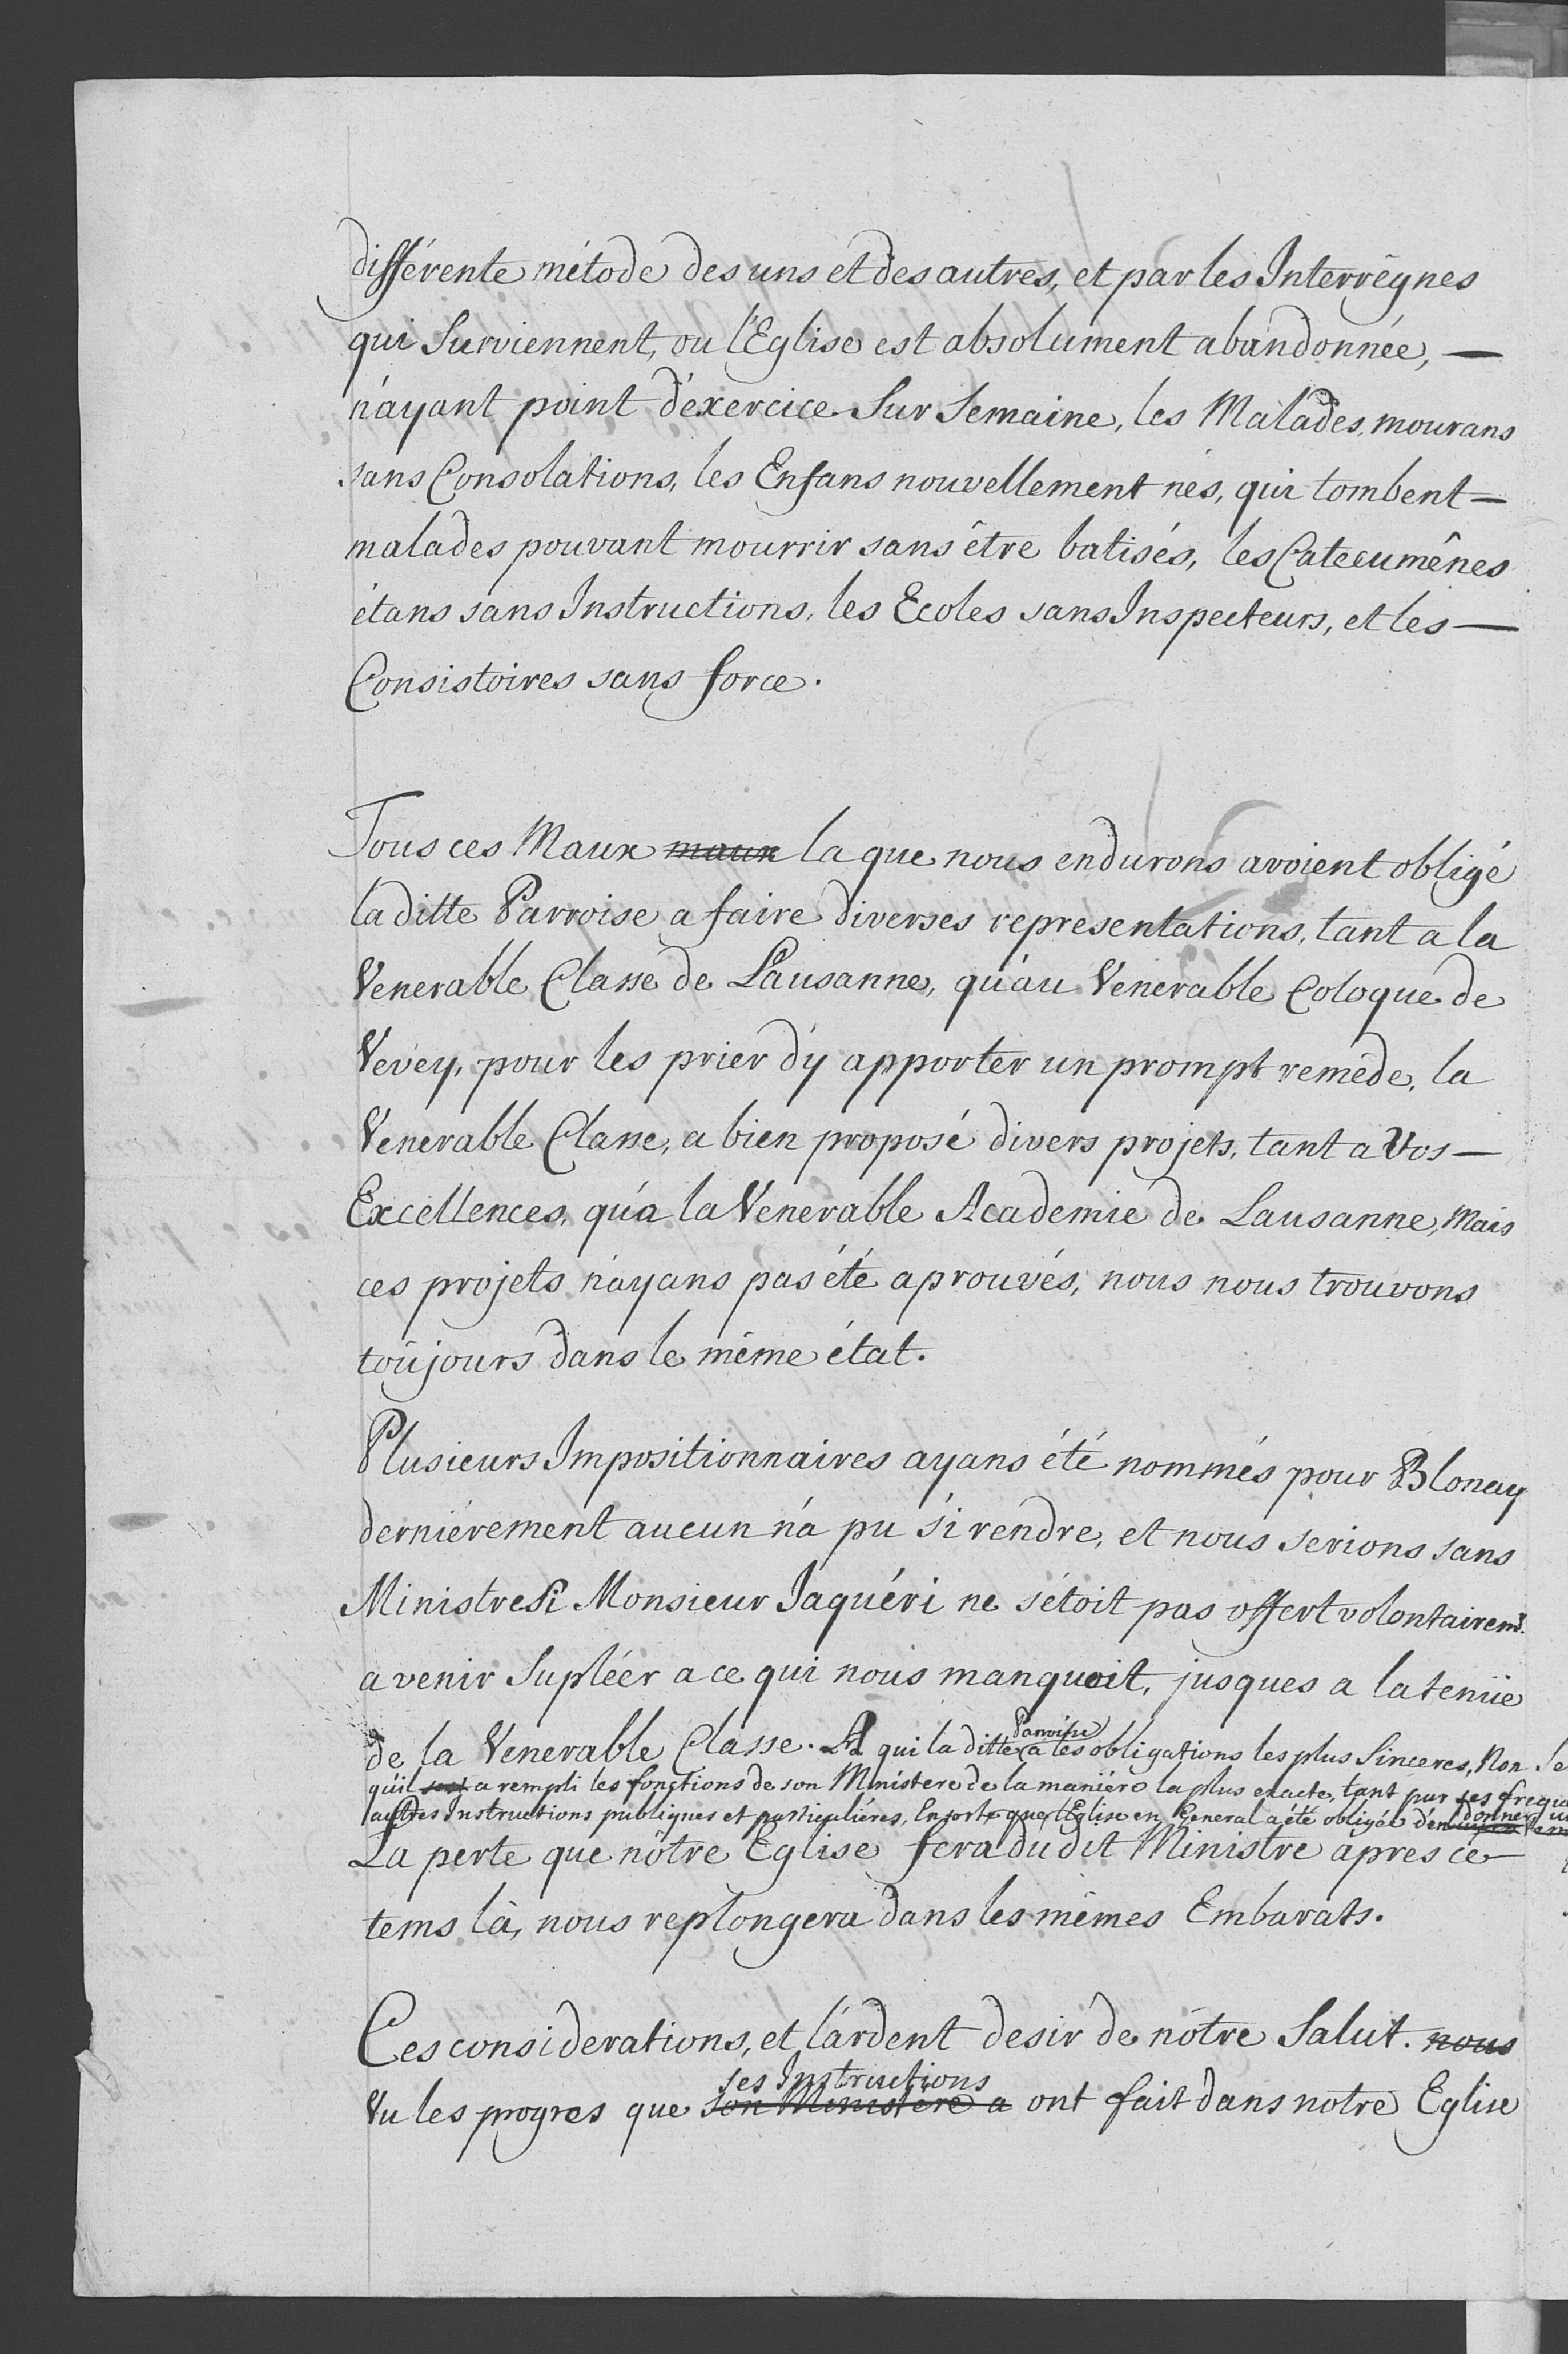 différente métode des uns et des autres, et par les Interrêgnes
qui Surviennent, ou l'Eglise est absolument abandonnée, —
n'ayant point d'éxercice Sur Semaine, les Malades mourans
sans Consolations, les Enfans nouvellement nés, qui tombent —
malades pouvant mourrir sans être batisés, les Catecumênes
étans sans Instructions, les Ecoles sans Inspecteurs, et les —
Consistoires sans force.
Tous ces Maux maux la que nous endurons avoient obligé
la ditte Parroise a faire diverses representations, tant a la
Venerable Classe de Lausanne, qu'au Venerable Coloque de
Vevey, pour les prier d'y apporter un prompt remêde, la
Venerable Classe, a bien proposé divers projets, tant a Vos —
Excellences, qu'a la Venerable Academie de Lausanne, Mais
ces projets n'ayans pas été aprouvés, nous nous trouvons
toujours dans le même état.
Plusieurs Impositionnaires ayans été nommés pour Blonay
derniérement aucun n'a pu s'i rendre, et nous serions sans
Ministre Si Monsieur Jaquéri ne s'étoit pas offert volontairemt.
a venir Supléer a ce qui nous manquoit, jusques a la tenüe
de la Venerable Classe. A qui la ditte Parroisse a les obligations les plus Sinceres, Non
qu'il a rempli les fonctions de son Ministere de la maniére la plus exacte, tant par ses
autres Instructions publiques et particuliéres, Ensorte que l'Eglise en General a été obligée d'en donner
La perte que nôtre Eglise fera du dit Ministre apres ce
tems là, nous replongera dans les mêmes Embarats.
Ces considerations, et l'ardent desir de nôtre Salut. nous
ses Instructions
Vu les progres que son Ministère a ont fait dans notre Eglise